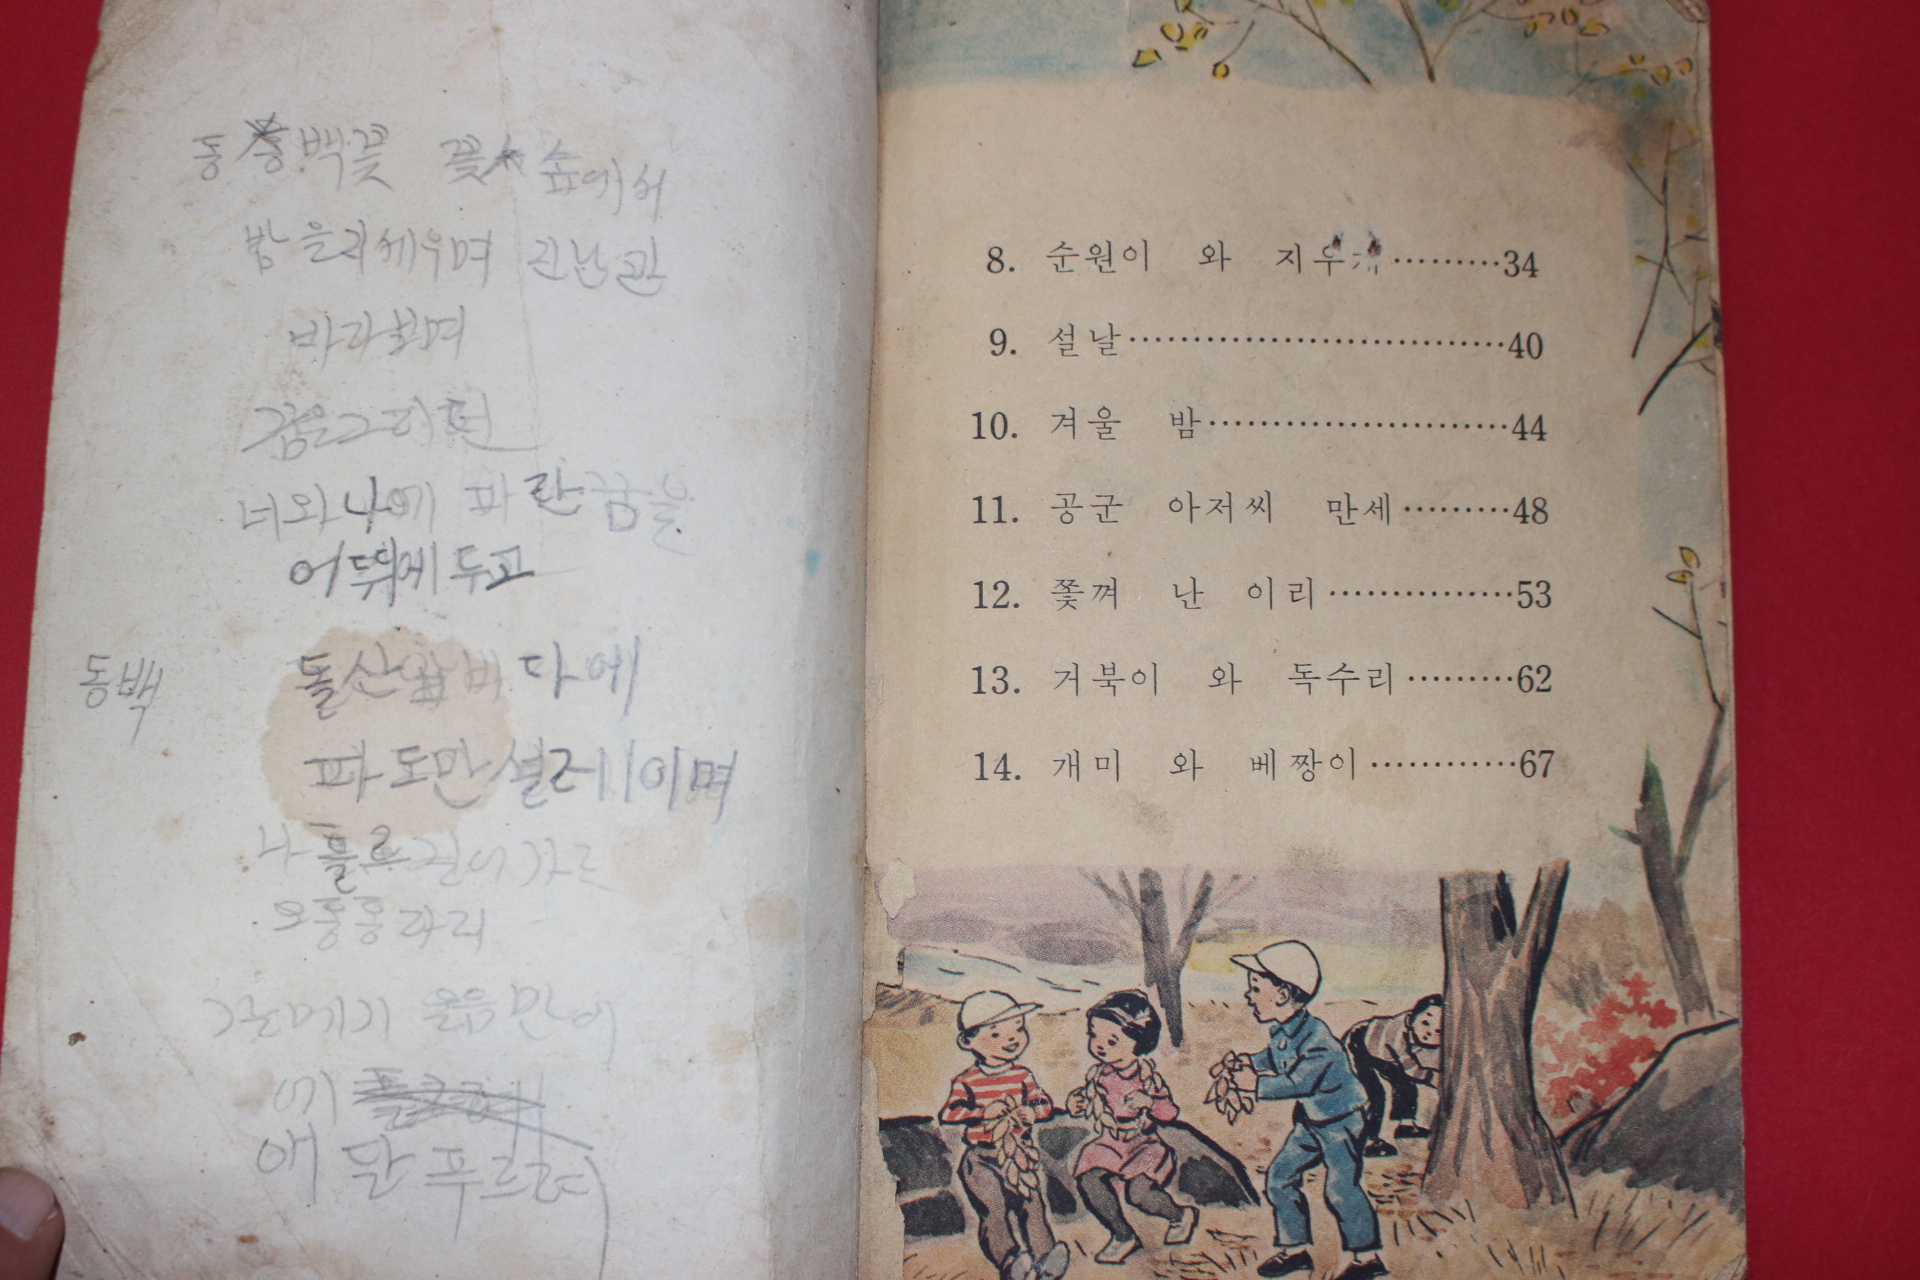 동백꽃 꽃 숲에서
밤을 지세우며 지난 일
바라보며
꿈은 그리현
너와 나에 파란 꿈을
어뜌에 두고
동백
돌산 앞 바다에
파도만 설레이며
나 홀로 걷어가는
오동동
갈메기 울음만이
에
애달푸르려
8. 순원이 와 지우개·········34
9. 설날······························40
10. 겨울 밤························44
11. 공군 아저씨 만세·········48
12. 쫓겨 난 이리···············53
13. 거북이 와 독수리·········62
14. 개미 와 베짱이············67